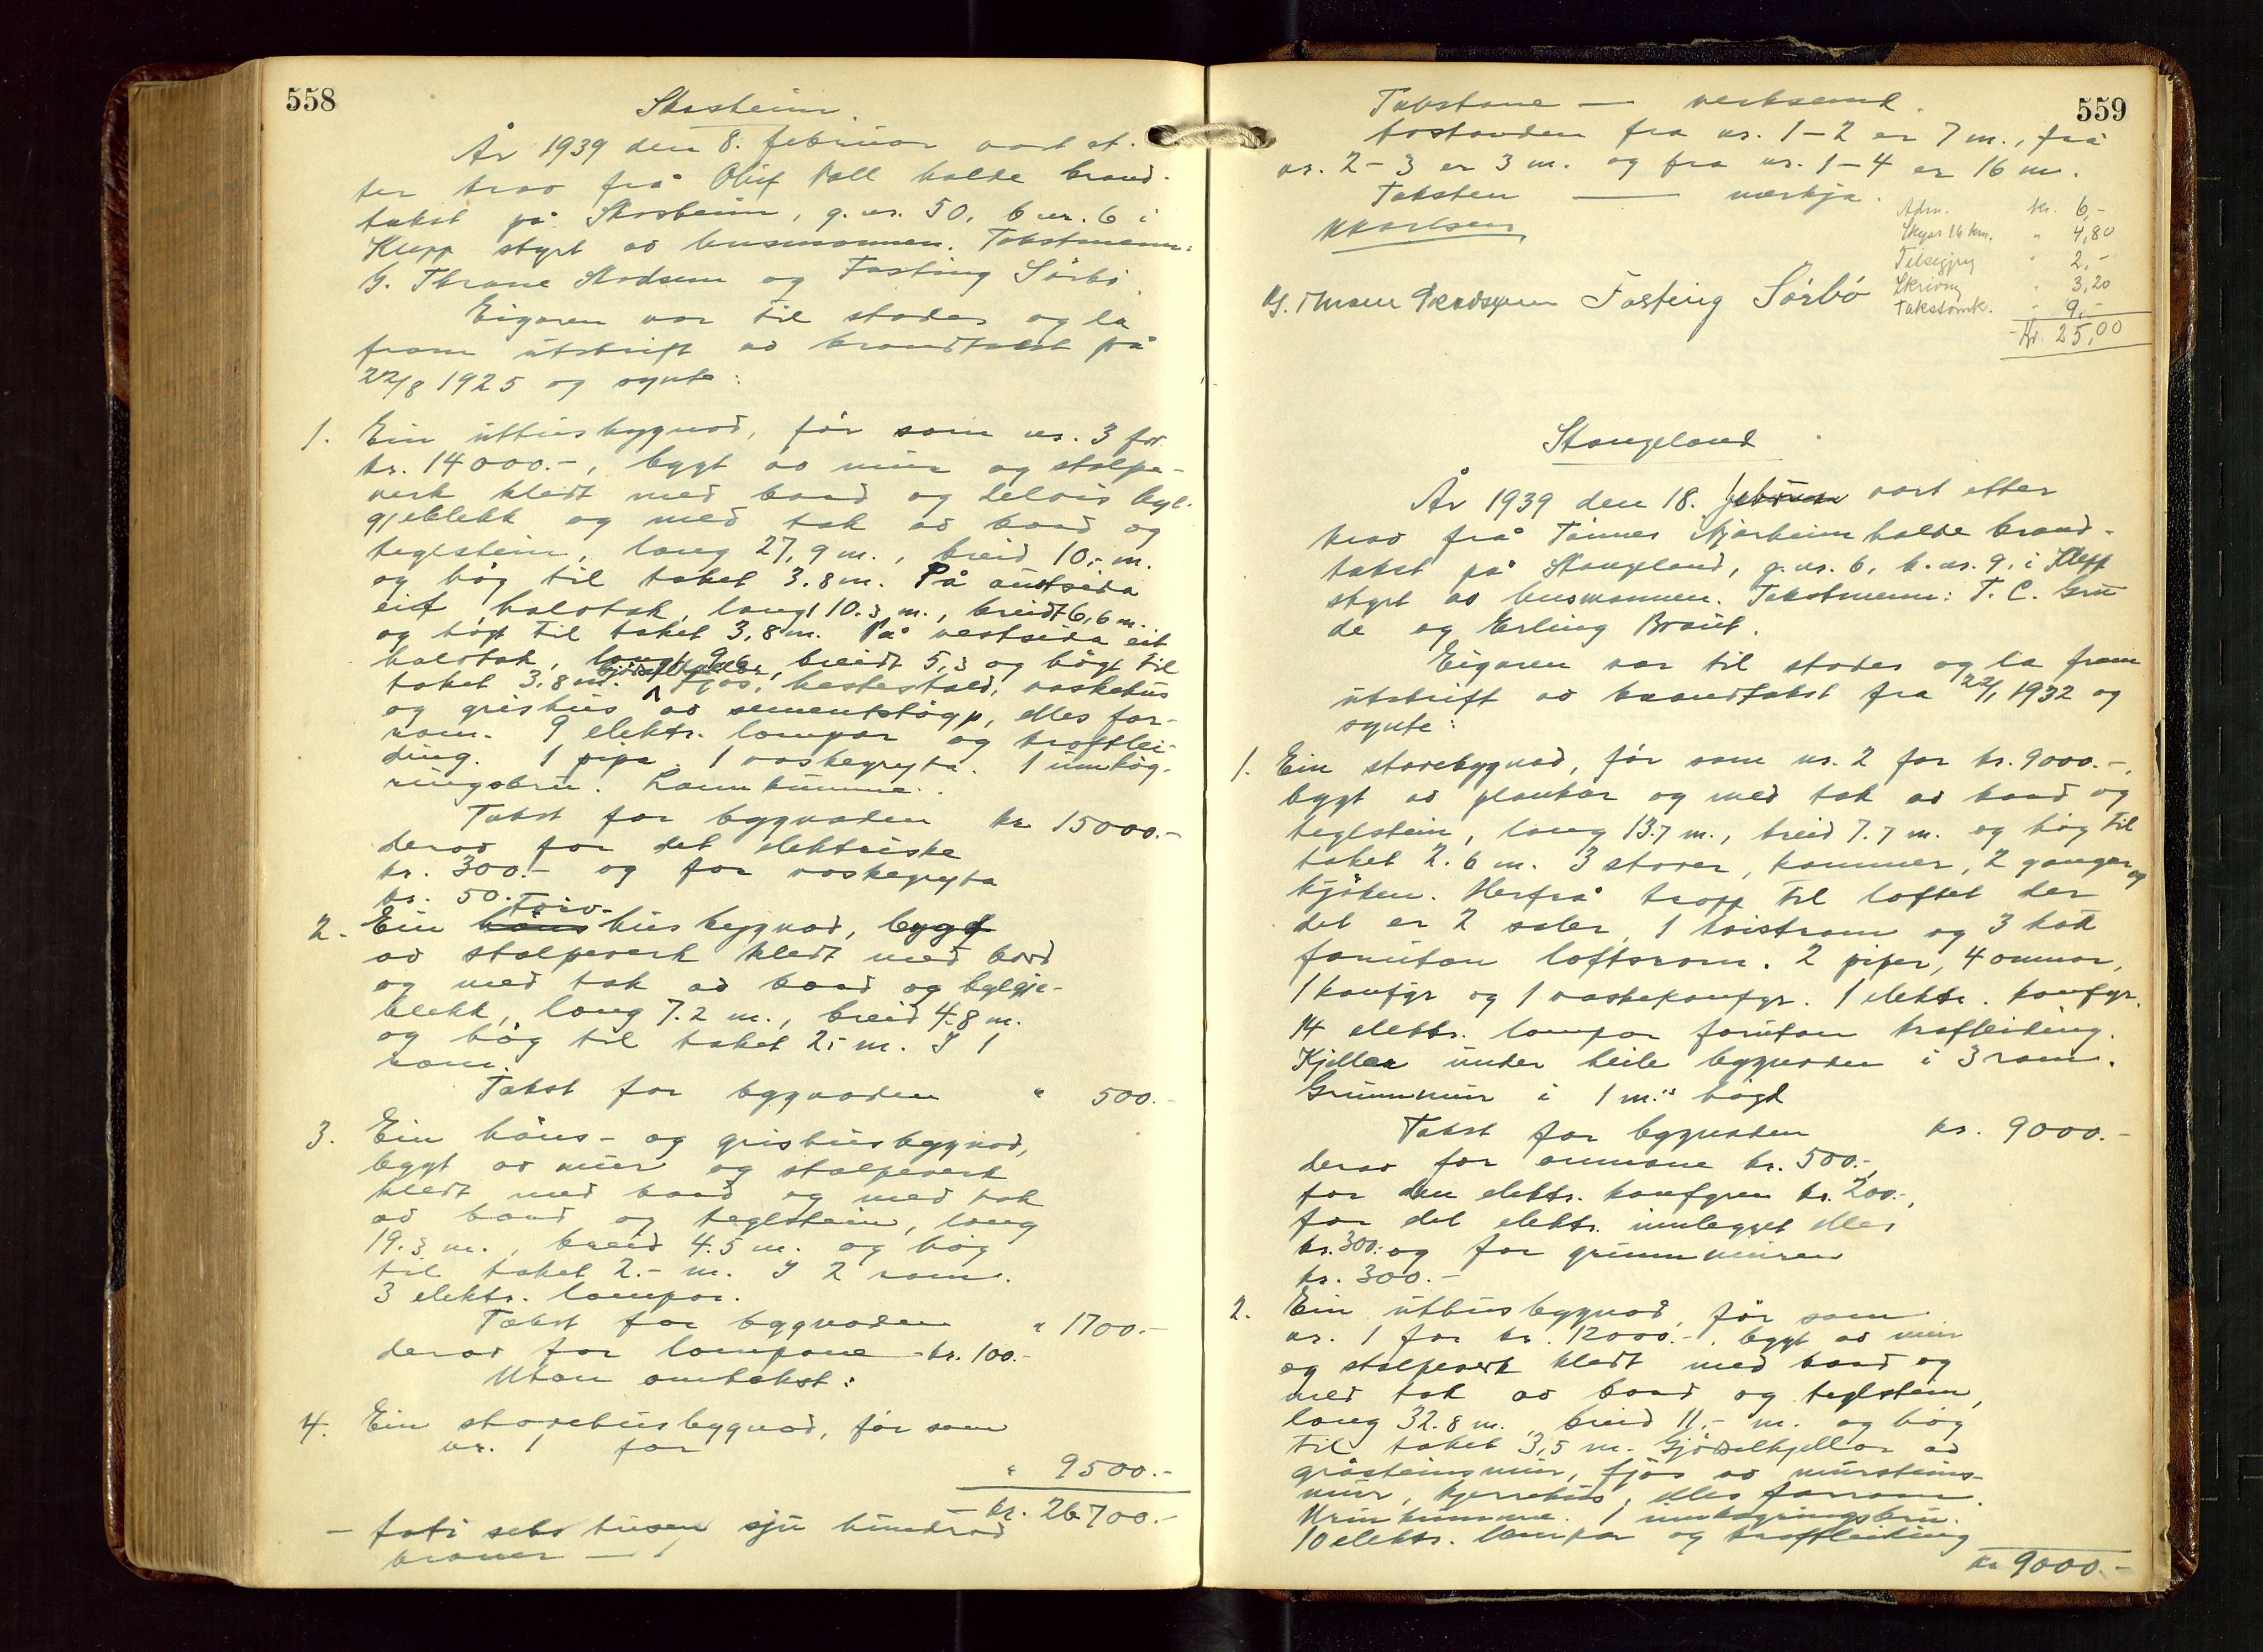 558
År 1939 den 8. februar vart et-
ter krav frå Oluf Voll halde brand-
takst på Skasheim, g.nr. 50, b.nr. 6 i
Klepp styrt av lensmannen. Takstmenn:
G. Thrane Skadsem og Fasting Sörbö
Eigaren var til stades og la
fram utskrift av brandtakst på
22/8 1925 og synte:
1. Ein uthusbygnad, för som nr. 3 for
kr. 14000.-, bygt av mur og stolpe-
verk kledt med bord og delvis byl-
gjeblekk og med tak av bord og
teglstein, lang 27,9 m., breid 10,- m.
og hög til taket 3.8 m. På austsida
eit halvtak, langt 10.3 m., breidt 6,6 m.
og högt til taket 3,8 m. På vestsida eit
halvtak, langt 9,6, breidt 5,3 og högt til
taket 3,8 m. Gjödselkjellar, fjös, hestestald, vaskehus
og grishus av sementstöyp, elles for-
rom. 9 elektr. lampar og kraftlei-
ding. 1 pipa. 1 vaskegryta. 1 innkög-
ringsbru. Landkumme.
Takst for bygnaden kr 15000.-
derav for det elektriske
kr. 300.- og for vaskegryta
kr. 50.-
2. Ein torv- hushygnad, bygd
av stolpeverk kledt med bord
og med tak av bord og bylgje-
blekk, lang 7.2 m., breid 4.8 m.
og hög til taket 2,- m. I 1
rom.
Takst for bygnaden " 500.-
3. Ein höns- og grishusbygnad,
bygt av mur og stolpeverk
kledt med bord og med tak
av bord og teglstein, lang
19.3 m., breid 4.5 m. og hög
til taket 2.- m. I 2 rom.
3 elektr. lampar.
Takst for bygnaden " 1700.-
derav for lampane kr. 100.-
Utan omtakst:
4. Ein stovehusbygnad, för som
nr. 1 for " 9500.-
- kr. 26700.-
- tjuge seks tusen sju hundrad
kroner -
559
Takstane — verksemd.
Avstanden fra nr. 1-2 er 7 m., frå
nr. 2-3 er 3 m. og fra nr. 1-4 er 16 m.
Taksten — verkja.
G. Thrane Skadsem Fasting Sörbö
kr. 6,-
Skyss 16 km. " 4,80
Tilsegjing " 2,-
Skriving " 3,20
Takstomk. " 9,-
Kr. 25,00
Stangeland
År 1939 den 18. februar vart etter
krav frå Tönnes Njærheim halde brand-
takst på Stangeland, g.nr. 6, b.nr. 9, i Klepp
styrt av lensmannen. Takstmenn: T. C. Gru
de og Erling Braut.
Eigaren var til stades og la fram
utskrift av brandtakst fra 22/1 1932 og
synte:
1. Ein stovebygnad, för som nr. 2 for kr. 9000.-,
bygt av plankar og med tak av bord og
teglstein, lang 13.7 m., breid 7.7 m. og hög til
taket 2.6 m. 3 stover, kammer, 2 ganger og
kjöken. Herfrå tropp til loftet der
det er 2 saler, 1 kvistrom og 3 kott
foruten loftsrom. 2 piper, 4 omnar,
1 komfyr og 1 vaskekomfyr. 1 elektr. komfyr.
14 elektr. lampor foruten kraftleiding.
Kjellar under heile bygnaden i 3 rom.
Grunnmur i 1 m.s högd
Takst for bygnaden kr. 9000.-
derav for omnane kr. 500.-,
for den elektr. komfyren kr. 200.-,
for det elektr. innlegget elles
kr. 300.- og for grunnmuren
kr. 300.-
2. Ein uthusbygnad, för som
nr. 1 for kr. 12000.-, bygt av mur
og stolpeverk kledt med bord og
med tak av bord og teglstein,
lang 32.8 m., breid 11,- m. og hög
til taket 3,5 m. Gjödselkjellar av
gråsteinsmur, fjös av mursteins-
mur, kjerrehus, elles forrom.
Urinkumme. 1 innkögringsbru.
10 elektr. lampar og kraftleiding
kr 9000.-